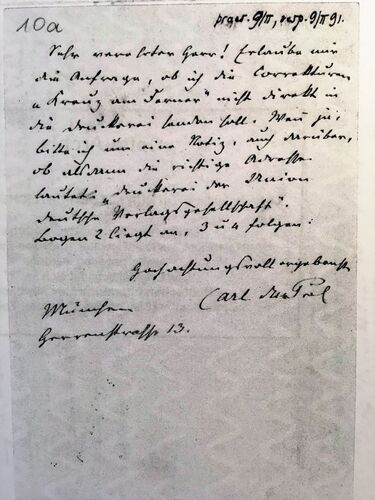 10a
präs. 9/II, resp. 9/II 91.
Sehr verehrter Herr! Erlaube mir
die Anfrage, ob ich die Correkturen
„Kreuz am Ferner" nicht direkt in
die Druckerei senden soll. Wenn ja,
bitte ich um eine Notiz, auch darüber,
ob alsdann die richtige Adresse
lautet: „Druckerei der Union
deutsche Verlagsgesellschaft".
Bogen 2 liegt an, 3 u 4 folgen.
Hochachtungsvoll ergebenst
Carl du Prel
München
Herrenstrasse 13.